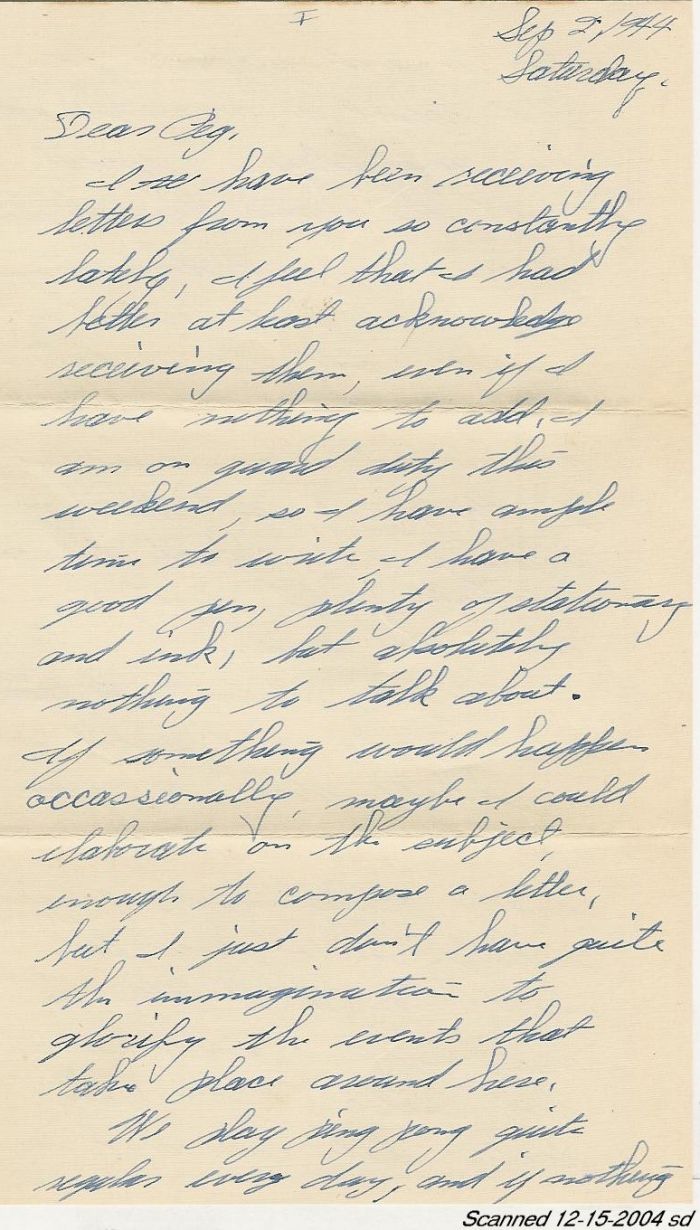 I
Sep 2, 1944
Saturday.
Dear Peg,
I have been receiving
letters from you so constantly
lately, I feel that I had
better at least acknowledge
receiving them, even if I
have nothing to add. I
am on guard duty this
weekend, so I have ample
time to write. I have a
good pen, plenty of stationary
and ink, but absolutely
nothing to talk about.
If something would happen
occassionally, maybe I could
elaborate on the subject,
enough to compose a letter,
but I just don't have quite
the immagination to
glorify the events that
take place around here.
We play ping pong quite
regular every day, and if nothing
Scanned 12-15-2004 sd